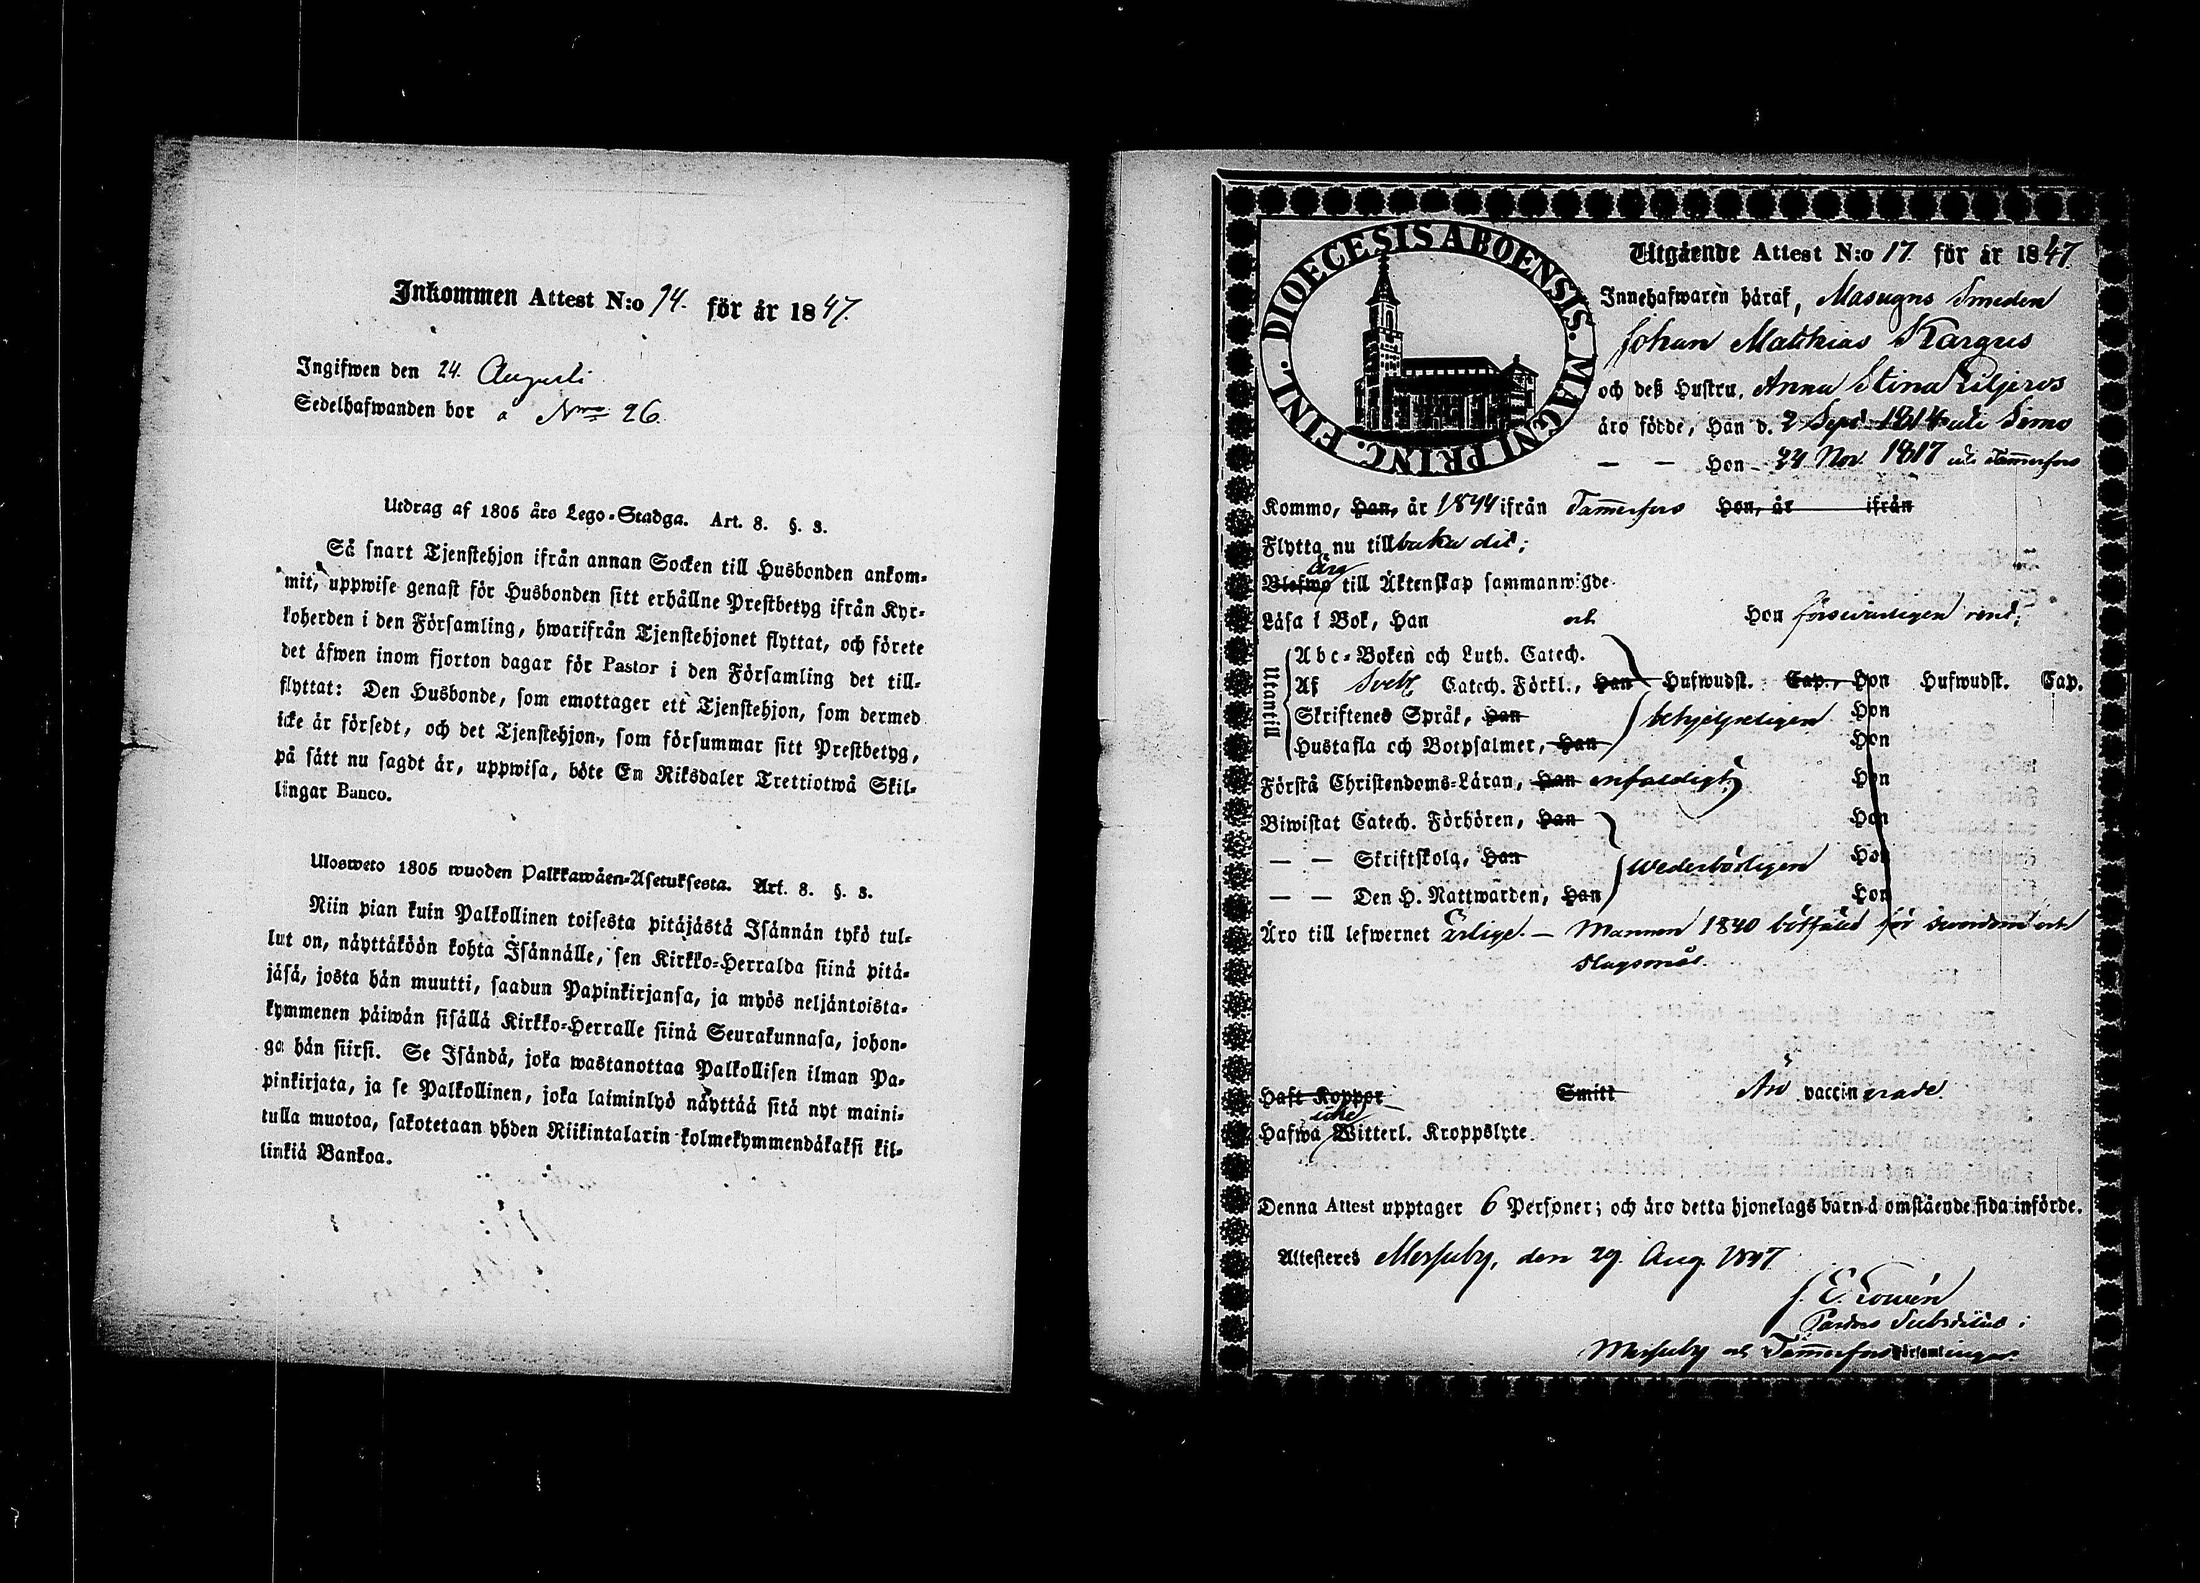 Inkommen Attest N:o 74. för år 1847.
Ingifwen den 24. Augusti
Sedelhafwanden bor å Nro 26.
Utdrag af 1805 års Lego-Stadga. Art. 8. §. 3.
Så snart Tjenstehjon ifrån annan Socken till Husbonden ankom-
mit, uppwise genast för Husbonden sitt erhållne Prestbetyg ifrån Kyr-
koherden i den Församling, hwarifrån Tjenstehjonet flyttat, och förete
det äfwen inom fjorton dagar för Pastor i den Församling det till-
flyttat: Den Husbonde, som emottager ett Tjenstehjon, som dermed
icke är försedt, och det Tjenstehjon, som försummar sitt Prestbetyg,
på sätt nu sagdt är, uppwisa, böte En Riksdaler Trettiotwå Skil-
lingar Banco.
Ulosweto 1805 wuoden Palkkawäen-Asetuksesta. Art. 8. §. 3.
Niin pian kuin Palkollinen toisesta pitäjästä Isännän tykö tul-
lut on, näyttäköön kohta Isännälle, sen Kirkko-Herralda siinä pitä-
jäsä, josta hän muutti, saadun Papinkirjansa, ja myös neljäntoista-
kymmenen päiwän sisällä Kirkko-Herralle siinä Seurakunnasa, johon-
ga hän siirsi. Se Isändä, joka wastanottaa Palkollisen ilman Pa-
pinkirjata, ja se Palkollinen, joka laiminlyö näyttää sitä nyt maini-
tulla muotoa, sakotetaan yhden Riikintalarin kolmekymmendäkaksi kil-
linkiä Bankoa.
DIOECESIS ABOENSIS. MAGNI PRINC. FINL.
Utgående Attest N:o 17 för år 1847.
Innehafwaren häraf, Masugns Smeden
Johan Matthias Kargus
och deß Hustru, Anna Stina Liljeros
äro födde, Han d. 2 Sept 1814 uti
— — Hon 24 Nov. 1817 uti Tammerfors
Kommo, Han, år 1844 ifrån Tammerfors Hon, år ifrån
Flytta nu tillbaka dit;
äro
Blefwo till Äktenskap sammanwigde
Läsa i Bok, Han och Hon försvarligen rent;
Utantill
Abc-Boken och Luth. Catech.
Af Svebil Catech. Förkl., Han Hufwudst. Cap., Hon Hufwudst. Cap.
Skriftenes Språk, Han behjelpeligen Hon
Hustafla och Botpsalmer, Han Hon
Förstå Christendoms-Läran, Han enfaldigt; Hon
Biwistat Catech. Förhören, Han Hon
— — Skriftskola, Han wederbörligen Hon
— — Den H. Nattwarden, Han Hon
Äro till lefwernet ärlige. — Mannen 1840 bötfäld för svordom och
slagsmål.
Haft Koppor Smitt Äro vaccinerade
icke
Hafwa Witterl. Kroppslyte
Denna Attest upptager 6 Personer; och äro detta hjonelags barn å omstående sida införde.
Attesteres Messuby, den 29. Aug. 1847
Pastors Substitut i
Messuby och Tammerfors Församlingar.